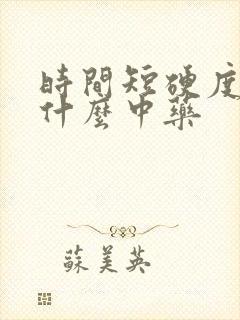 時間短硬度
什麼中藥
蘇美英